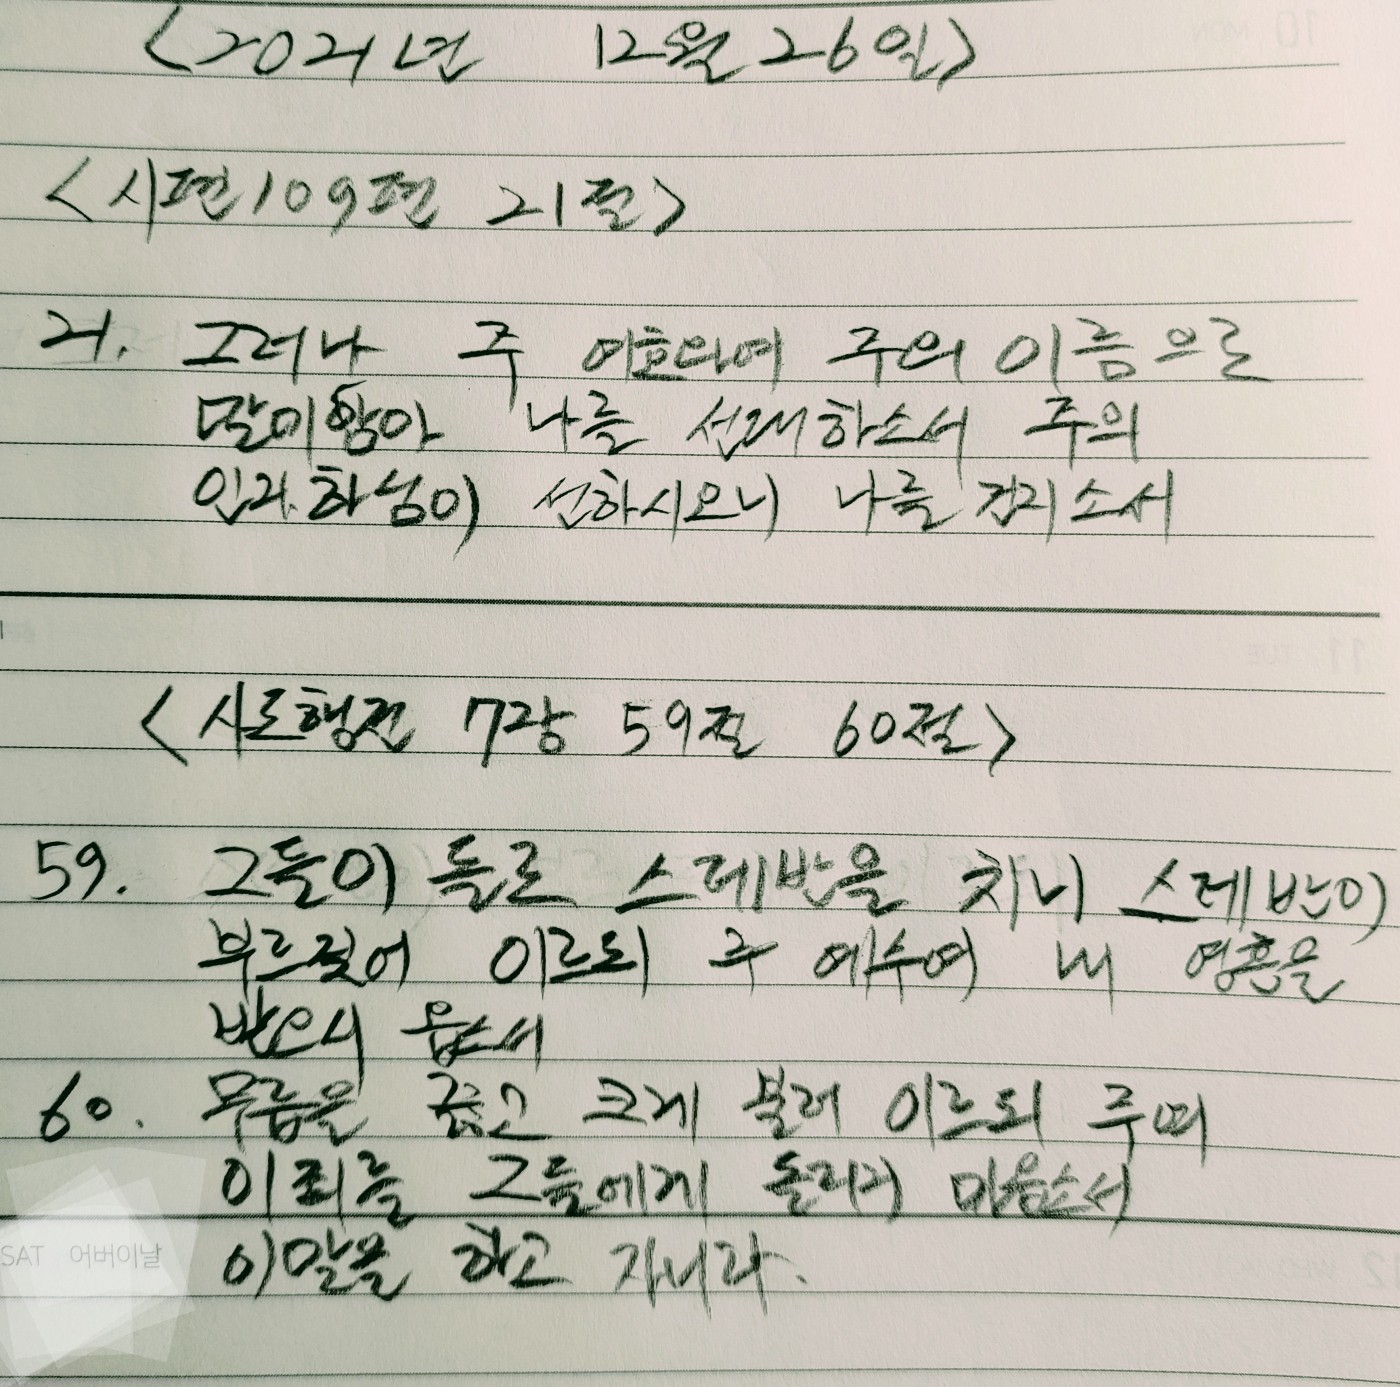 <2021년 12월 26일>
<시편109편 21절>
21. 그러나 주 여호와여 주의 이름으로
말미암아 나를 선대하소서 주의
인자하심이 선하시오니 나를 건지소서
<사도행전 7장 59절 60절>
59. 그들이 돌로 스데반을 치니 스데반이
부르짖어 이르되 주 예수여 내 영혼을
받으시 옵소서
60. 무릎을 꿇고 크게 불러 이르되 주여
이 죄를 그들에게 돌리지 마옵소서
이말을 하고 자니라.
SAT 어버이날